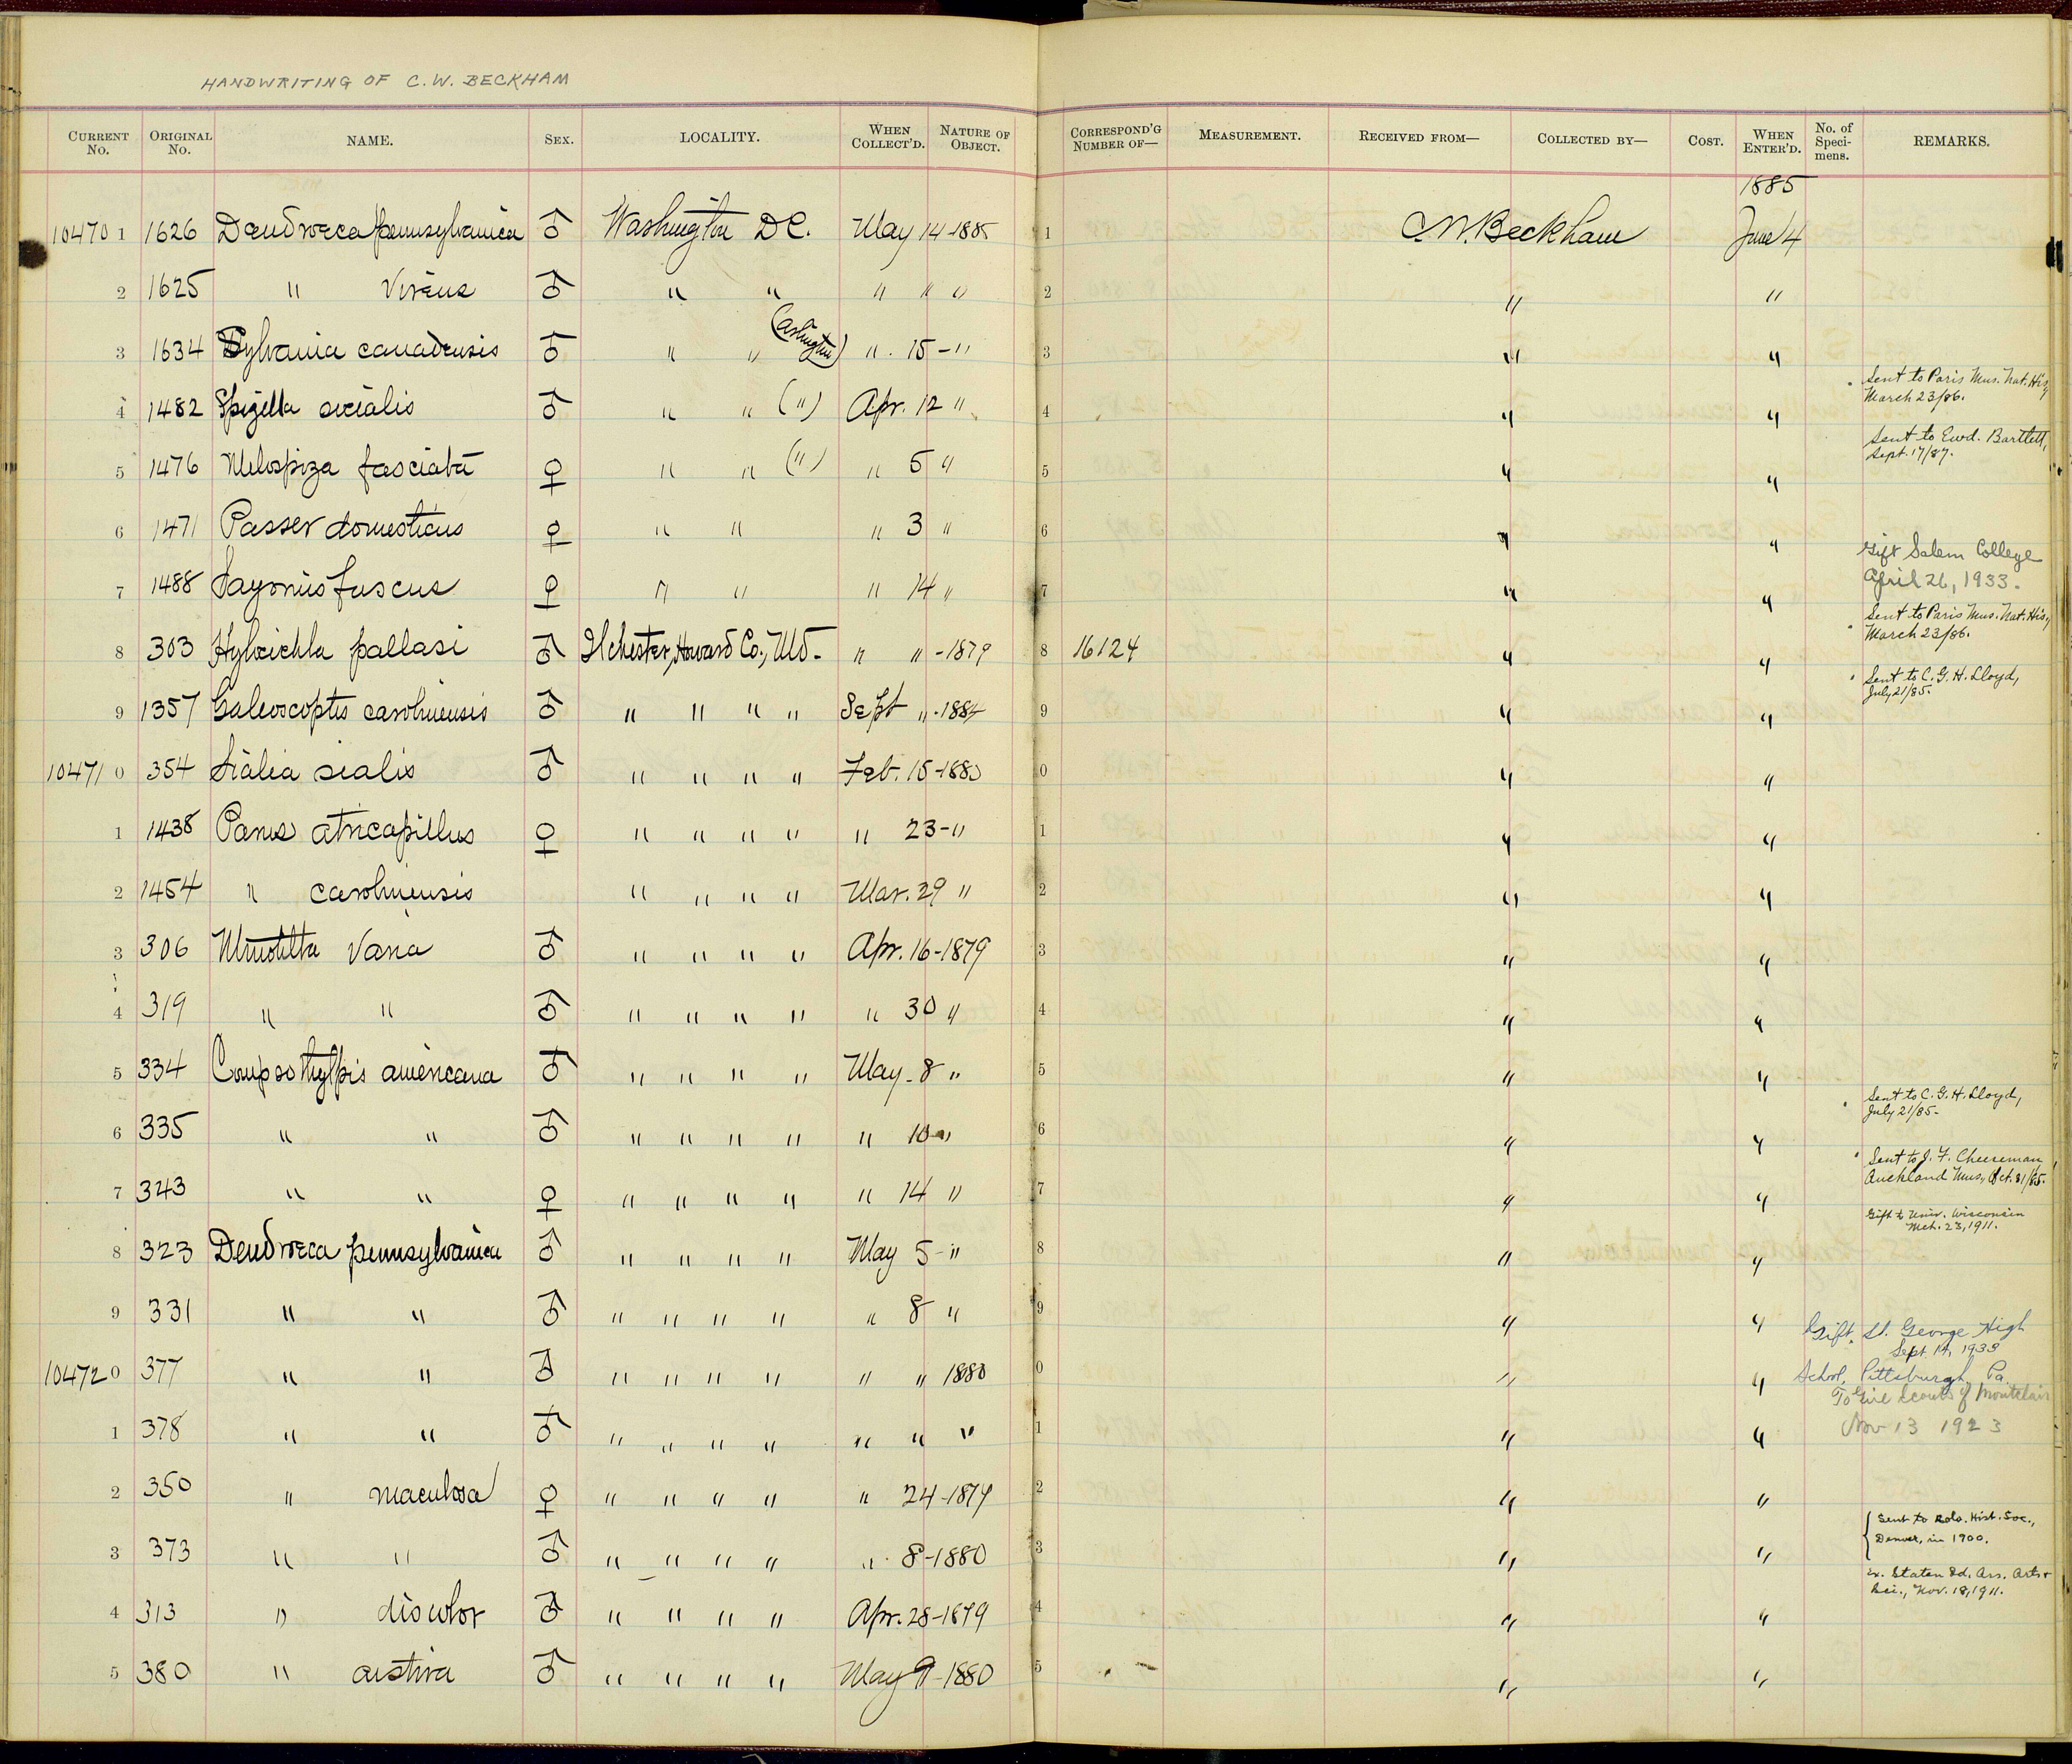 HANDWRITING OF C. W. BECKHAM
CURRENT No. ORIGINAL No. NAME. SEX. LOCALITY. WHEN COLLECT'D. NATURE OF OBJECT. CORRESPOND'G NUMBER OF— MEASUREMENT. RECEIVED FROM— COLLECTED BY— COST. WHEN ENTER'D. No. of Specimens. REMARKS.
1885
10470 1 1626 Dendroeca pennsylvanica ♂ Washington D.C. May 14-1885 1 C.W. Beckham June 4
2 1625 " virens ♂ " " " " " 2 " "
3 1634 Sylvania canadensis ♂ " " (Arlington) " 15 - " 3 " "
4 1482 Spizella socialis ♂ " " (") Apr. 12 " 4 " " Sent to Paris Mus. Nat. His, March 23/86.
5 1476 Melospiza fasciata ♀ " " (") " 5 " 5 " " Sent to Ewd. Bartlett, Sept. 17/87.
6 1471 Passer domesticus ♀ " " " 3 " 6 " "
7 1488 Sayornis fuscus ♀ " " " 14 " 7 " " Gift Salem College April 26, 1933.
8 303 Hylocichla pallasi ♂ Ilchester, Howard Co., Md. " " -1879 8 16124 " " Sent to Paris Mus. Nat. His, March 23/86.
9 1357 Galeoscoptes carolinensis ♂ " " " " Sept " -1884 9 " " Sent to C. G. H. Lloyd, July 21/85.
10471 0 354 Sialia sialis ♂ " " " " Feb. 15-1880 0 " "
1 1438 Parus atricapillus ♀ " " " " " 23 - " 1 " "
2 1454 " carolinensis " " " " Mar. 29 " 2 " "
3 306 Mniotilta varia ♂ " " " " Apr. 16-1879 3 " "
4 319 " " ♂ " " " " " 30 " 4 " "
5 334 Compsothlypis americana ♂ " " " " May 8 " 5 " "
6 335 " " ♂ " " " " " 10 " 6 " " Sent to C. G. H. Lloyd, July 21/85.
7 343 " " ♀ " " " " " 14 " 7 " " Sent to J. F. Cheeseman Auckland Mus., Oct. 31/85.
8 323 Dendroeca pennsylvanica ♂ " " " " May 5 - " 8 " " Gift to Univ. Wisconsin Mch. 23, 1911.
9 331 " " ♂ " " " " " 8 " 9 " "
10472 0 377 " " ♂ " " " " " " 1880 0 " " Gift, St. George High School, Pittsburgh, Pa. Sept. 14, 1938
1 378 " " ♂ " " " " " " " 1 " " To Girl Scouts of Montclair Nov 13 1923
2 350 " maculosa ♀ " " " " " 24-1879 2 " "
3 373 " " ♂ " " " " " 8-1880 3 " " Sent to Colo. Hist. Soc., Denver, in 1900.
4 313 " discolor ♂ " " " " Apr. 28-1879 4 " " Ex. Staten Id. Ass. Arts + Sci., Nov. 18, 1911.
5 380 " aestiva ♂ " " " " May 9-1880 5 " "